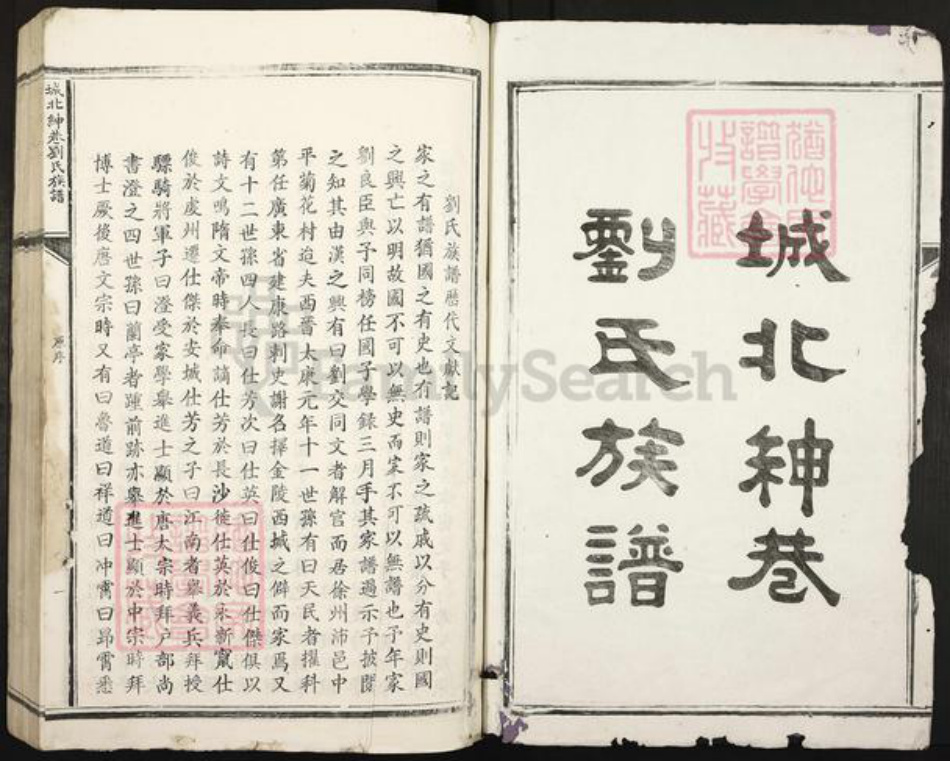 城北紳巷
劉氏族譜
劉氏族譜歷代文獻記
家之有譜猶國之有史也有譜則家之疏戚以分有史則國
之興亡以明故國不可以無史而家不可以無譜也予年家
劉良臣與予同榜任國子學錄三月手其家譜過示予披閱
之知其由漢之興有曰劉交同文者解官而居徐州沛邑中
平菊花村迨夫西晉太康元年十一世孫有曰天民者擢科
第任廣東省建康路刺史謝名擇金陵西城之僻而家焉又
有十二世孫四人長曰仕芳次曰仕英曰仕俊曰仕傑俱以
詩文鳴隋文帝時奉命謫仕芳於長沙徙仕英於永新竄仕
俊於虔州遷仕傑於安城仕芳之子曰江南者舉義兵拜授
驃騎將軍子曰澄受家學舉進士顯於唐太宗時拜户部尚
書澄之四世孫曰蘭亭者踵前跡亦舉進士顯於中宗時拜
博士厥後唐文宗時又有曰魯道曰祥道曰冲霄曰昂霄悉
城北紳巷劉氏族譜
序
一
FamilySearch